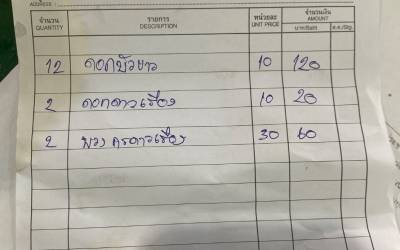 ADDRESS
จำนวน รายการ หน่วยละ จำนวนเงิน
QUANTITY DESCRIPTION UNIT PRICE AMOUNT
บาท/Baht ส.ต./Stg.
12 ดอกบัวขาว 10 120
2 ดอกดาวเรือง 10 20
2 พวง ดาวเรือง 30 60